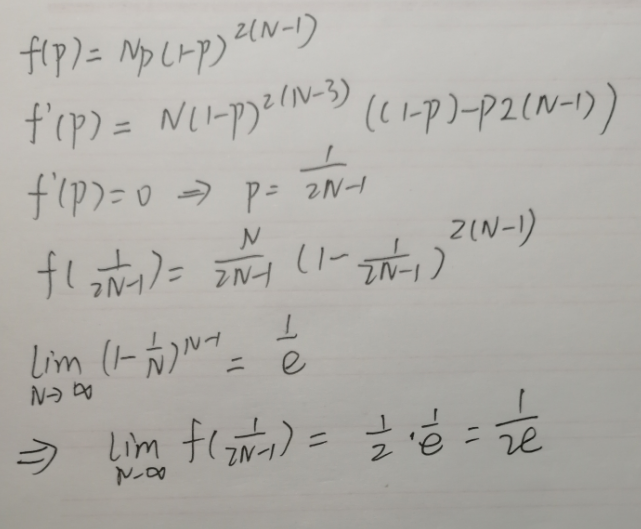 f(p) = Np(1-p)^{2(N-1)}
f'(p) = N(1-p)^{2(N-3)} ((1-p)-p2(N-1))
f'(p)=0 ⇒ p = \frac{1}{2N-1}
f(\frac{1}{2N-1}) = \frac{N}{2N-1} (1-\frac{1}{2N-1})^{2(N-1)}
\lim_{N→∞} (1-\frac{1}{N})^{N-1} = \frac{1}{e}
⇒ \lim_{N→∞} f(\frac{1}{2N-1}) = \frac{1}{2} \cdot \frac{1}{e} = \frac{1}{2e}